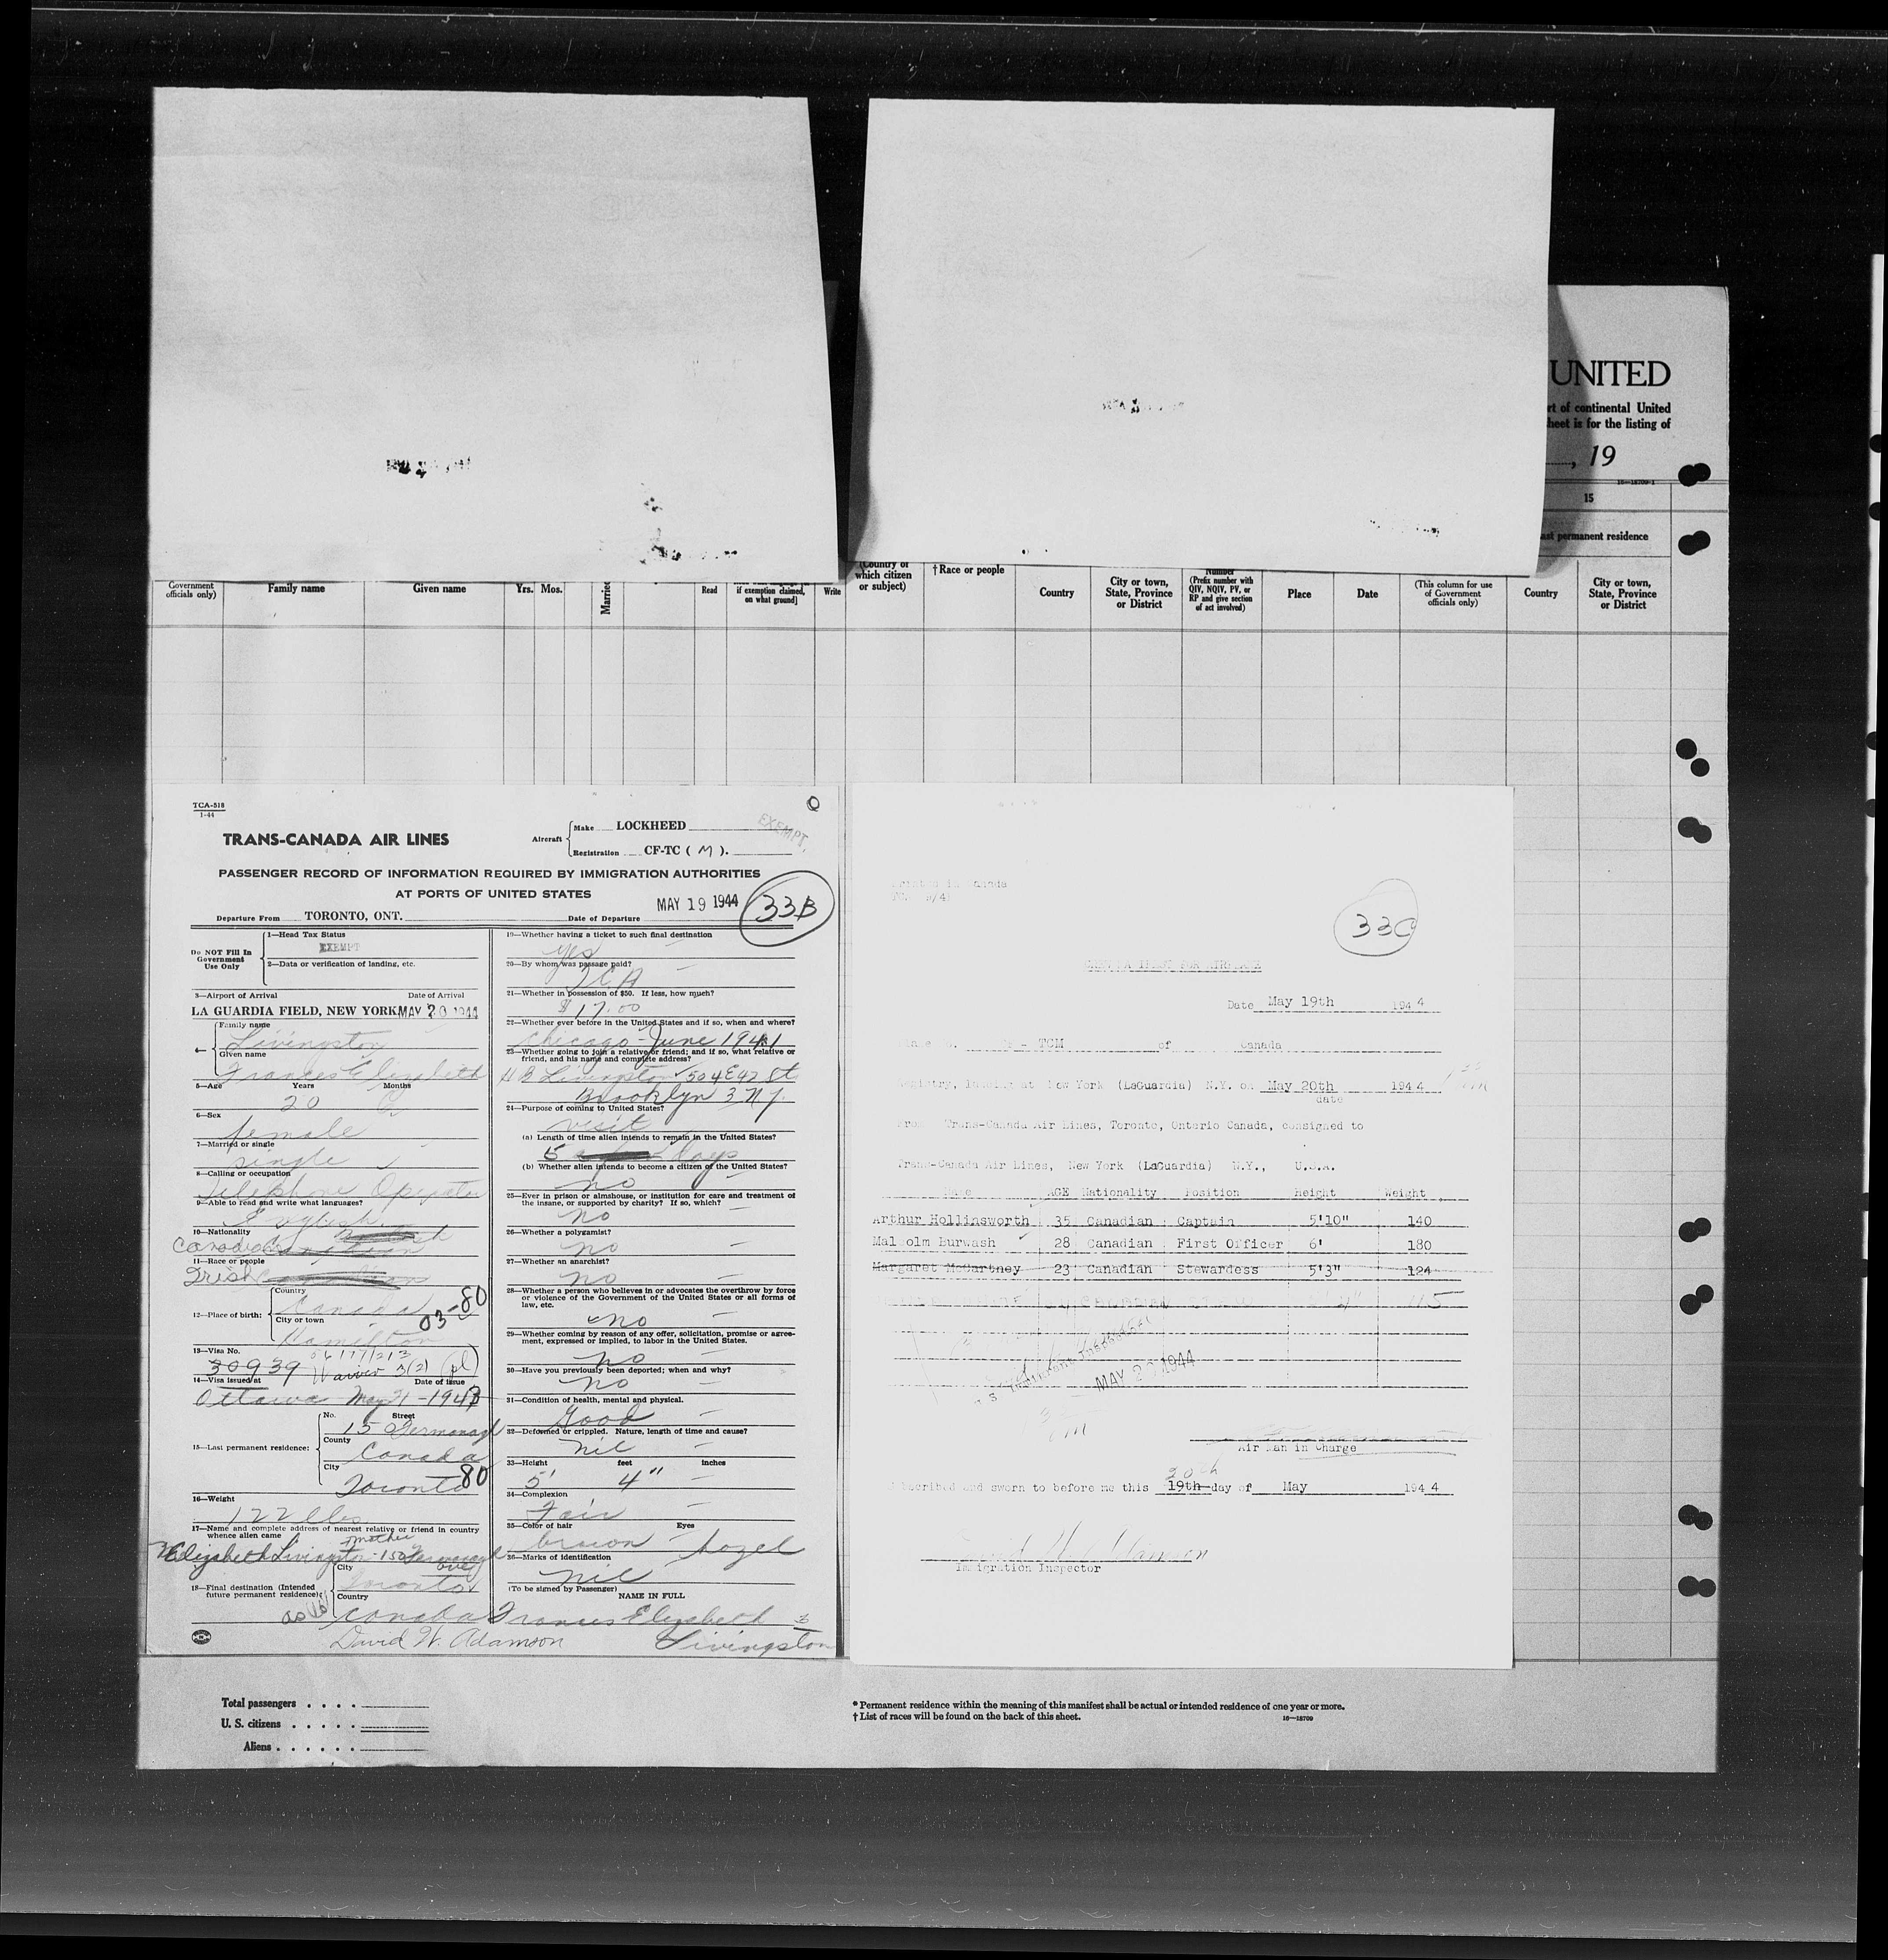 UNITED
rt of continental United
heet is for the listing of
, 19
16—18709-1
15
ast permanent residence
Government officials only)
Family name
Given name
Yrs. Mos.
Married
Read
if exemption claimed, on what ground]
Write
(Country of which citizen or subject)
†Race or people
Country
City or town, State, Province or District
Number (Prefix number with QIV, NQIV, PV, or RP and give section of act involved)
Place
Date
(This column for use of Government officials only)
Country
City or town, State, Province or District
TCA-518
1-44
TRANS-CANADA AIR LINES
Aircraft
Make LOCKHEED
Registration CF-TC ( M ).
EXEMPT.
PASSENGER RECORD OF INFORMATION REQUIRED BY IMMIGRATION AUTHORITIES
AT PORTS OF UNITED STATES
Departure From TORONTO, ONT.
Date of Departure MAY 19 1944
33B
Do NOT Fill In Government Use Only
1—Head Tax Status
EXEMPT
2—Data or verification of landing, etc.
3—Airport of Arrival Date of Arrival
LA GUARDIA FIELD, NEW YORK MAY 20 1944
4—
Family name
Livingston
Given name
Frances Elizabeth
5—Age Years Months
20
6—Sex
female
7—Married or single
single
8—Calling or occupation
Telephone Operator
9—Able to read and write what languages?
English
10—Nationality
Canadian
11—Race or people
Irish
12—Place of birth:
Country
Canada
City or town
Hamilton
03-80
13—Visa No.
30939 Waiver 3(2)
14—Visa issued at Date of issue
Ottawa May 21-1943
15—Last permanent residence:
No. Street
15 Fermanagh
County
Canada
City
Toronto 80
16—Weight
122 lbs
17—Name and complete address of nearest relative or friend in country whence alien came
mother
Elizabeth Livingston - 15 Fermanagh ave
18—Final destination (Intended future permanent residence):
City
Toronto
Country
Canada
David W. Adamson
19—Whether having a ticket to such final destination
yes
20—By whom was passage paid?
TCA
21—Whether in possession of $50. If less, how much?
$17.00
22—Whether ever before in the United States and if so, when and where?
Chicago - June 1941
23—Whether going to join a relative or friend; and if so, what relative or friend, and his name and complete address?
H B Livingston 504 E 42 St
Brooklyn 3 N.Y.
24—Purpose of coming to United States?
visit
(a) Length of time alien intends to remain in the United States?
5 days
(b) Whether alien intends to become a citizen of the United States?
no
25—Ever in prison or almshouse, or institution for care and treatment of the insane, or supported by charity? If so, which?
no
26—Whether a polygamist?
no
27—Whether an anarchist?
no
28—Whether a person who believes in or advocates the overthrow by force or violence of the Government of the United States or all forms of law, etc.
no
29—Whether coming by reason of any offer, solicitation, promise or agreement, expressed or implied, to labor in the United States.
no
30—Have you previously been deported; when and why?
no
31—Condition of health, mental and physical.
Good
32—Deformed or crippled. Nature, length of time and cause?
nil
33—Height feet inches
5' 4"
34—Complexion
Fair
35—Color of hair Eyes
brown hazel
36—Marks of identification
nil
(To be signed by Passenger)
NAME IN FULL
Frances Elizabeth Livingston
33C
Date May 19th 1944
TCM of Canada
landing at New York (LaGuardia) N.Y. on May 20th 1944
date
From Trans-Canada Air Lines, Toronto, Ontario Canada, consigned to
Trans-Canada Air Lines, New York (LaGuardia) N.Y., U.S.A.
Name AGE Nationality Position Height Weight
Arthur Hollinsworth 35 Canadian Captain 5'10" 140
Malcolm Burwash 28 Canadian First Officer 6' 180
Margaret McCartney 23 Canadian Stewardess 5'3" 124
MAY 20 1944
Air Man in Charge
20th
Subscribed and sworn to before me this 19th day of May 1944
Immigration Inspector
Total passengers . . . .
U. S. citizens . . . . .
Aliens . . . . . .
* Permanent residence within the meaning of this manifest shall be actual or intended residence of one year or more.
† List of races will be found on the back of this sheet.
16—18709